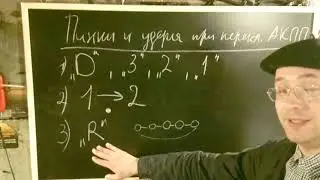 Пинки и удары при перекл. АКПП
1) „D“, „3“, „2“, „1“
2) 1 → 2
3) „R“